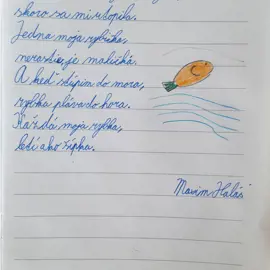 skoro sa mi utopila.
Jedna moja rybka,
nerastie, je maličká.
A keď stúpim do mora,
rybka pláva do hora.
Každá moja rybka,
letí ako šípka.
Maxim Halás